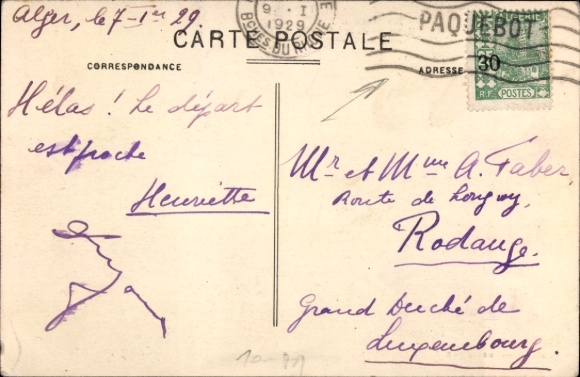 Alger, le 7-1er 29.
9 - I
1929
BCHES DU RHONE
PAQUEBOT
CARTE POSTALE
CORRESPONDANCE
ADRESSE
30
R.F. POSTES
Hélas ! Le départ
est proche
Henriette
Mr et Mme A. Faber,
Route de Longwy,
Rodange.
Grand Duché de
Luxembourg.